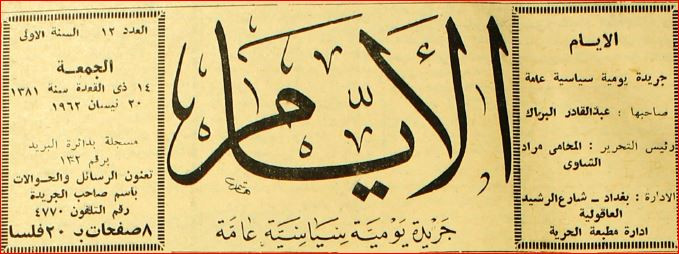 الايام
جريدة يومية سياسية عامة
صاحبها : عبدالقادر البراك
رئيس التحرير : المحامى مراد
الشاوى
الادارة : بغداد ــ شارع الرشيد
العاقولية
ادارة مطبعة الحرية
الأيام
جريدة يومية سياسية عامة
العدد ١٢ السنة الاولى
الجمعة
١٤ ذى القعدة سنة ١٣٨١
٢٠ نيسان ١٩٦٢
مسجلة بدائرة البريد
برقم ١٣٢
تعنون الرسائل والحوالات
باسم صاحب الجريدة
رقم التلفون ٤٧٧٠
٨ صفحات ب ٢٠ فلسا